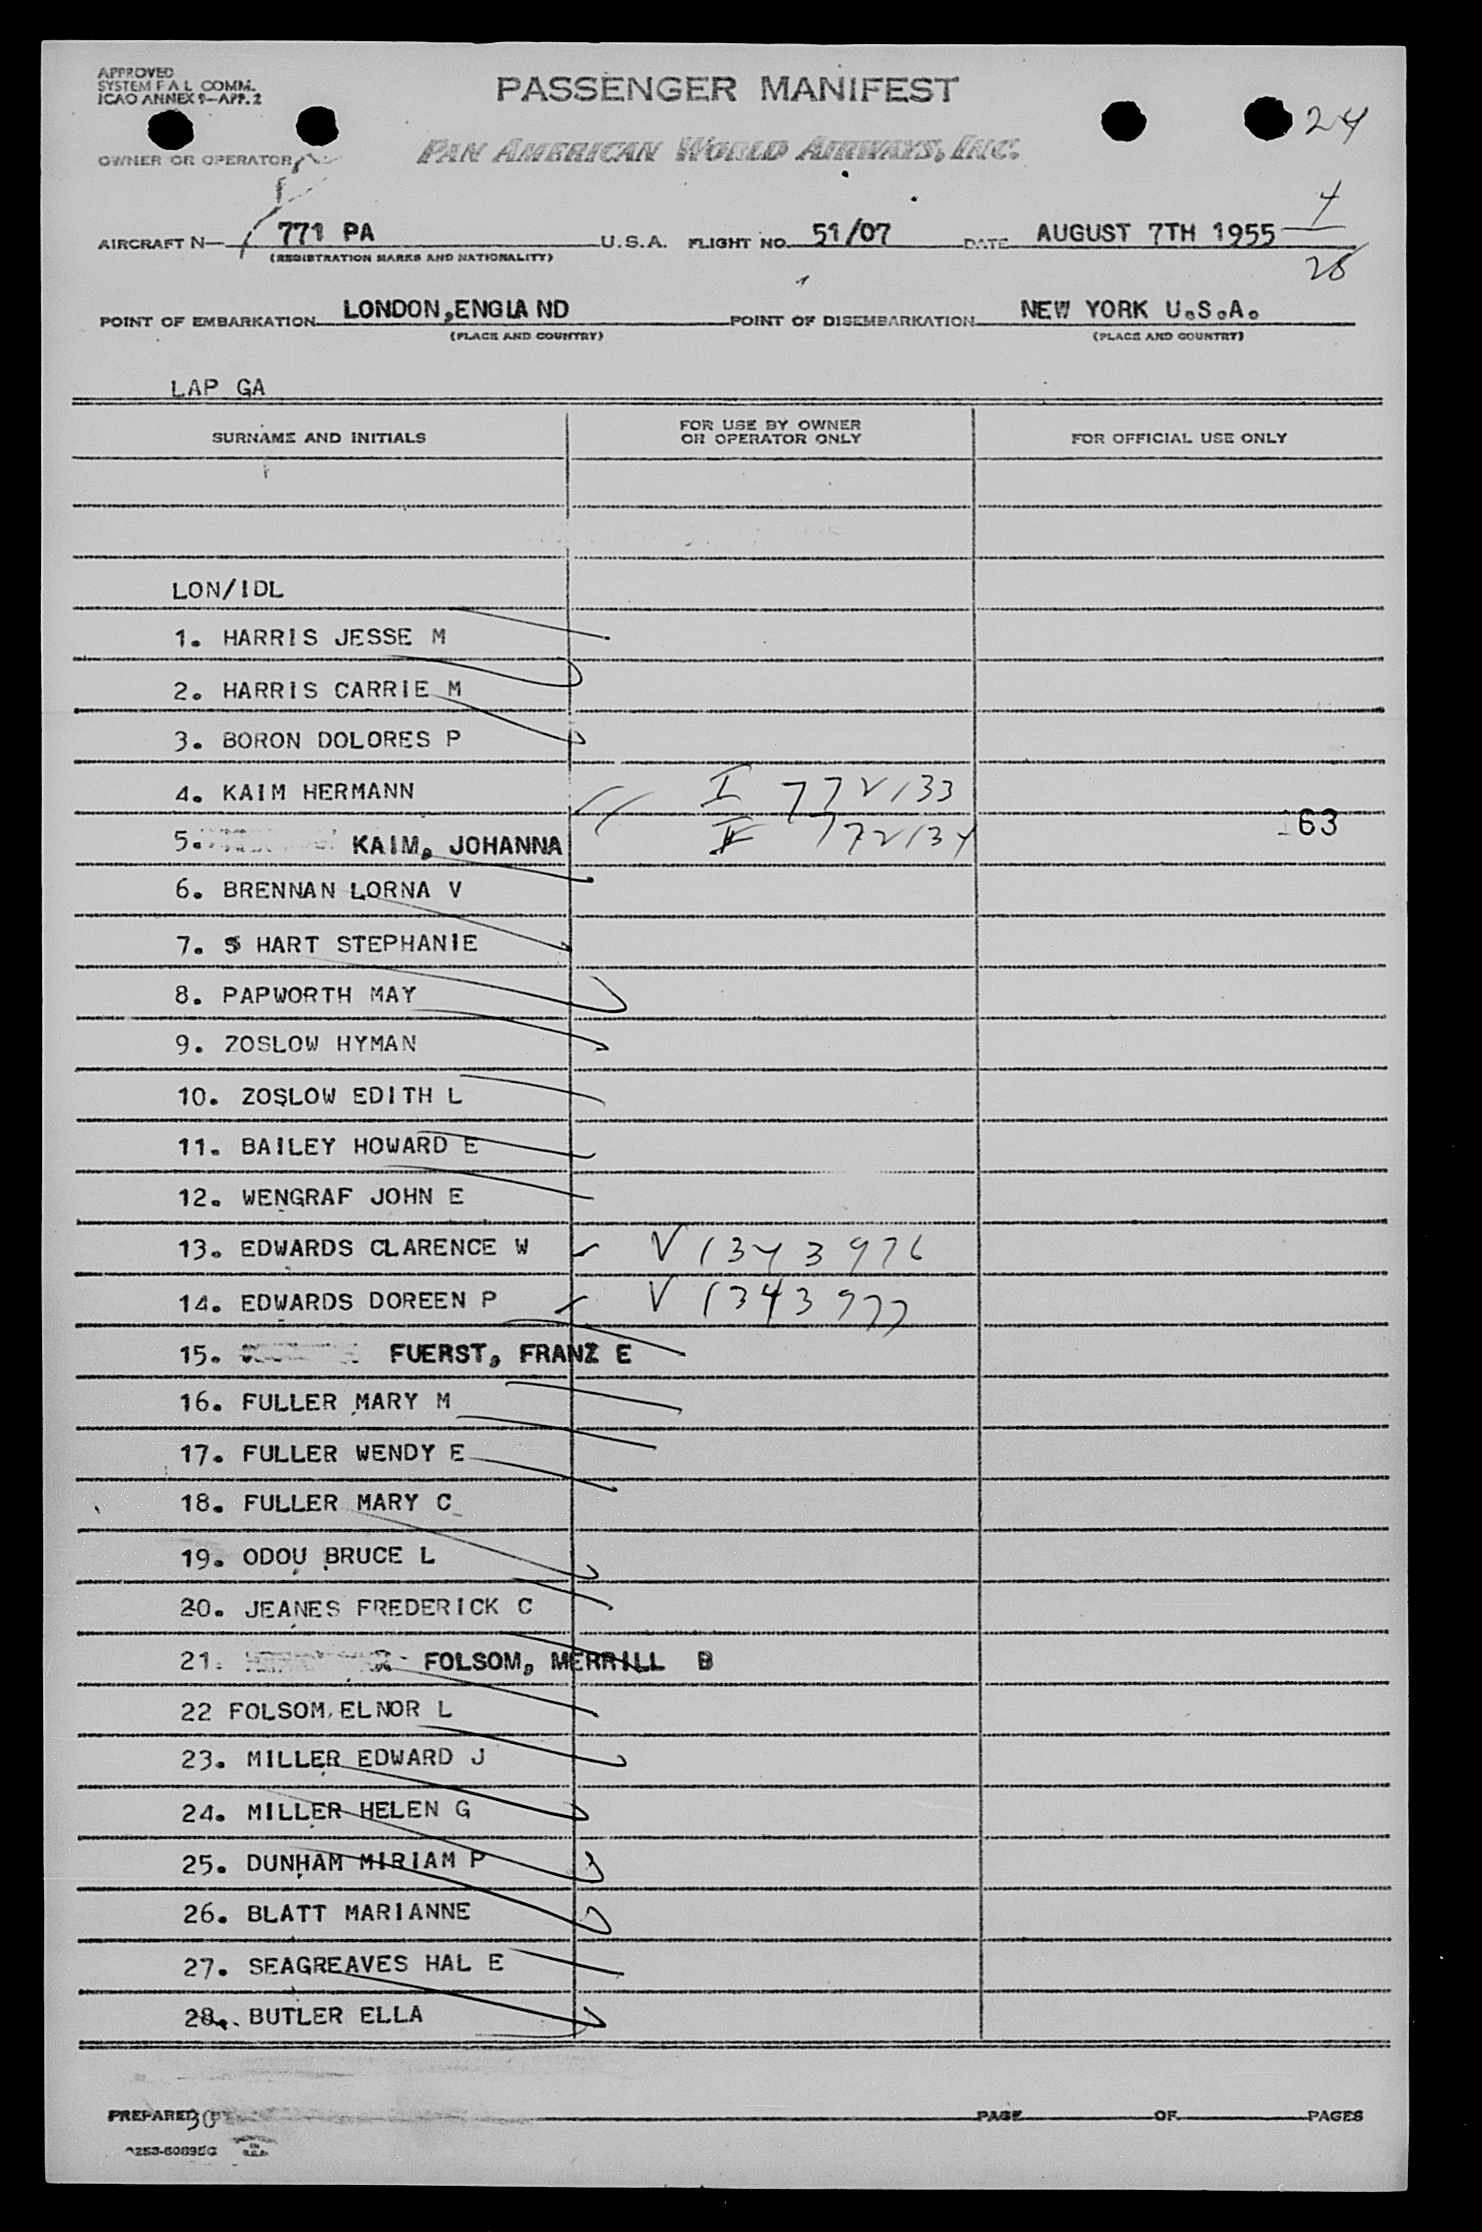 APPROVED
SYSTEM F A L COMM.
ICAO ANNEX 9-APP. 2
PASSENGER MANIFEST
24
OWNER OR OPERATOR
PAN AMERICAN WORLD AIRWAYS, INC.
4
AIRCRAFT N- 771 PA U.S.A. FLIGHT NO. 51/07 DATE AUGUST 7TH 1955
(REGISTRATION MARKS AND NATIONALITY)
28
POINT OF EMBARKATION LONDON,ENGLAND POINT OF DISEMBARKATION NEW YORK U.S.A.
(PLACE AND COUNTRY) (PLACE AND COUNTRY)
LAP GA
SURNAME AND INITIALS
FOR USE BY OWNER
OR OPERATOR ONLY
FOR OFFICIAL USE ONLY
LON/IDL
1. HARRIS JESSE M
2. HARRIS CARRIE M
3. BORON DOLORES P
4. KAIM HERMANN I 772133
5. KAIM, JOHANNA 772134 163
6. BRENNAN LORNA V
7. S HART STEPHANIE
8. PAPWORTH MAY
9. ZOSLOW HYMAN
10. ZOSLOW EDITH L
11. BAILEY HOWARD E
12. WENGRAF JOHN E
13. EDWARDS CLARENCE W V 1343976
14. EDWARDS DOREEN P V 1343977
15. FUERST, FRANZ E
16. FULLER MARY M
17. FULLER WENDY E
18. FULLER MARY C
19. ODOU BRUCE L
20. JEANES FREDERICK C
21. FOLSOM, MERRILL B
22 FOLSOM, ELNOR L
23. MILLER EDWARD J
24. MILLER HELEN G
25. DUNHAM MIRIAM P
26. BLATT MARIANNE
27. SEAGREAVES HAL E
28. BUTLER ELLA
PREPARED BY 30 PAGE OF PAGES